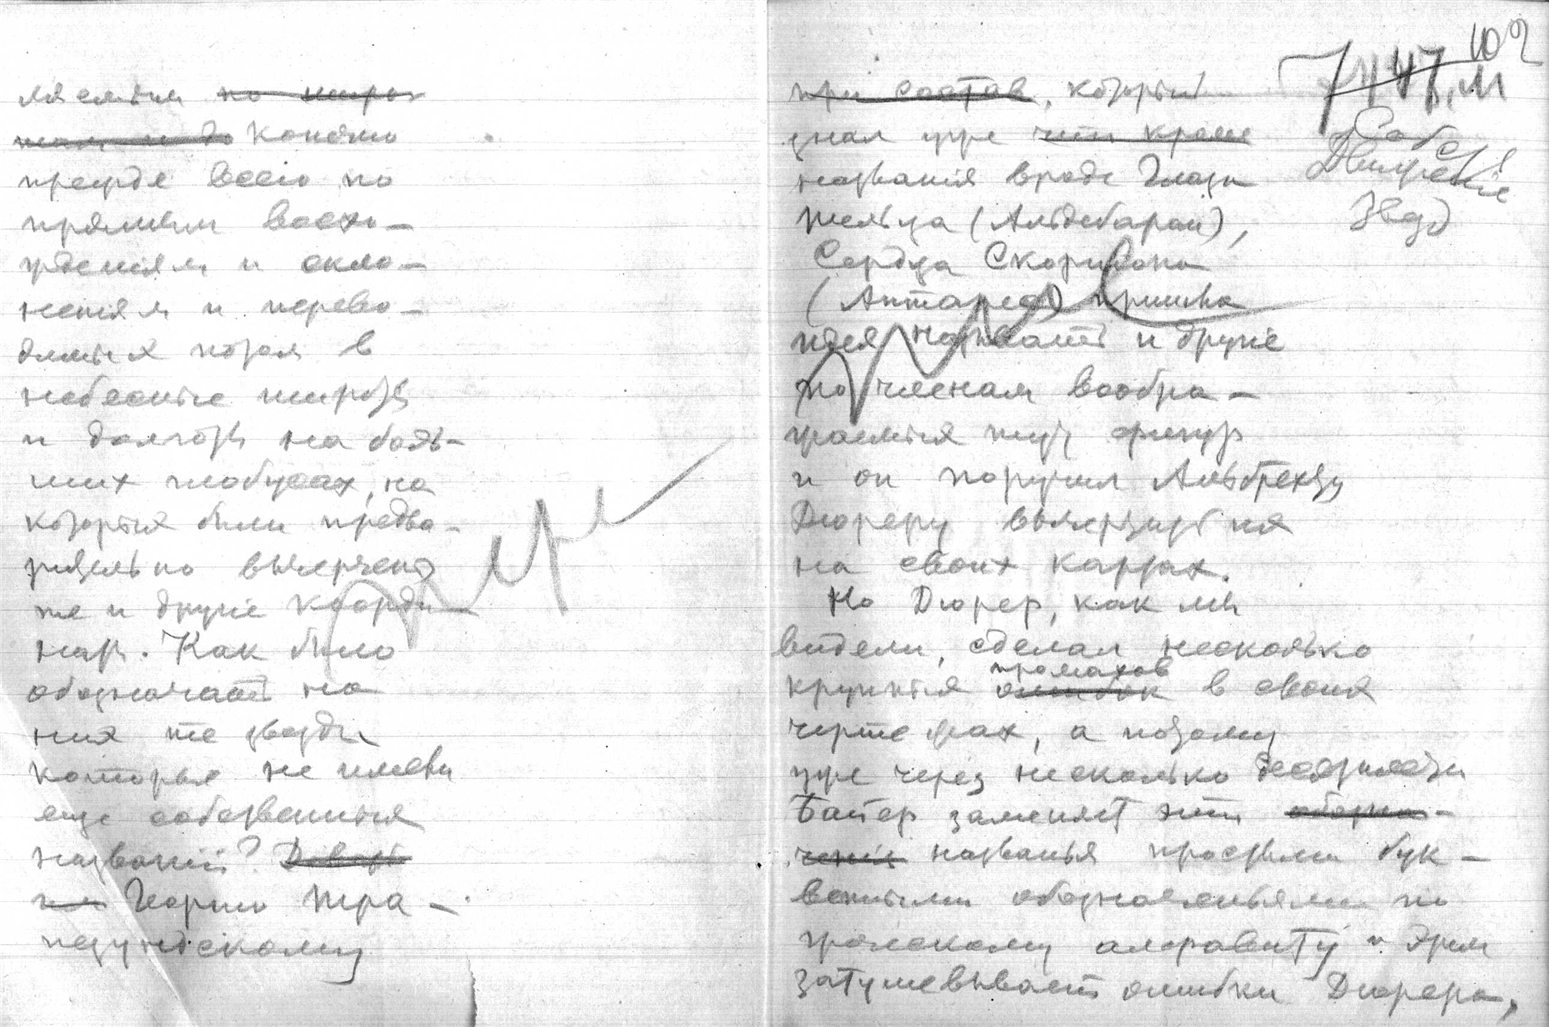 ляемым ~~по широ~~
~~там и до~~ Конечно
прежде всего по
прямым восхо-
жденіям и скло-
неніям и перево-
димыя потом в
небесные широты
и долготы на боль-
ших глобусах, на
которыя были предва-
рительно вычерчены
же и другіе коорди-
нат. Как было
обозначать на
них те звезды
которые не имели
еще собственныя
названій?
Георгию Тра-
пезундскому
102
7447, М
Соб
звезд
~~при состав~~, который
знал уже ~~чти кроме~~
названія вроде Глаза
тельца (Альдебаран),
Сердца Скорпіона
(Антарес) пришла
идея называть и другіе
по членам вообра-
жаемыя тут фигур
и он поручил Альбрехту
Дюреру вычертить их
на своих картах.
Но Дюрер, как мы
видели, сделал несколько
промахов
крупныя ~~ошибок~~ в своих
чертежах, а потому
уже через несколько десятилетій
Байер заменяет эти ~~обозна-~~
~~ченія~~ названья простыми бук-
венными обозначеньями по
греческому алфавиту и этим
затушевывает ошибки Дюрера,